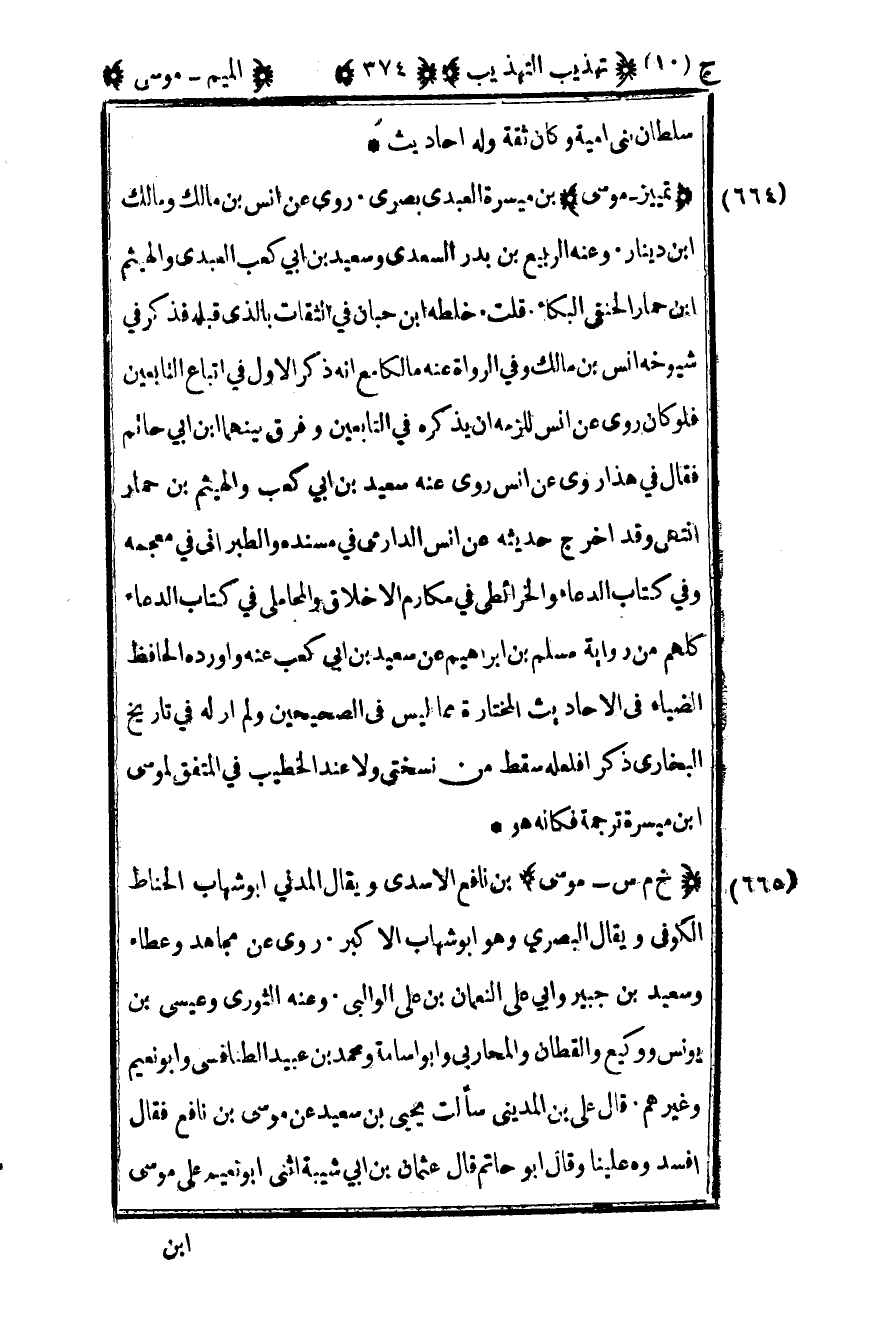 ج (١٠) ﴿ تهذيب التهذيب ﴾ ﴿ ٣٧٤ ﴾ ﴿ الميم - موسى ﴾
سلطان بنى امية وكان ثقة وله احاديث *
(٦٦٤) ﴿ تمييز - موسى ﴾ بن ميسرة العبدى بصرى . روى عن انس بن مالك ومالك
ابن دينار . وعنه الربيع بن بدر السعدى وسعيد بن ابي كعب العبدى والهيثم
ابن حمار الحنفى البكاء . قلت . خلطه ابن حبان في الثقات بالذى قبله فذكر في
شيوخه انس بن مالك وفي الرواة عنه مالكا مع انه ذكر الاول في اتباع التابعين
فلو كان روى عن انس للزمه ان يذكره في التابعين وفرق بينهما ابن ابي حاتم
فقال في هذا روى عن انس روى عنه سعيد بن ابي كعب والهيثم بن حمار
انتهى وقد اخرج حديثه عن انس الدارمى في مسنده والطبرانى في معجمه
وفي كتاب الدعاء والخرائطى في مكارم الاخلاق والمحاملى في كتاب الدعاء
كلهم من رواية مسلم بن ابراهيم عن سعيد بن ابي كعب عنه واورده الحافظ
الضياء فى الاحاديث المختارة مما ليس فى الصحيحين ولم ار له في تاريخ
البخارى ذكرا فلعله سقط من نسختي ولا عند الخطيب في المتفق لموسى
ابن ميسرة ترجمة فكانه هو *
(٦٦٥) ﴿ خ م س - موسى ﴾ بن نافع الاسدى ويقال المدني ابو شهاب الحناط
الكوفى ويقال البصري وهو ابو شهاب الاكبر . روى عن مجاهد وعطاء
وسعيد بن جبير وابي على النعمان بن على الوالبى . وعنه الثورى وعيسى بن
يونس ووكيع والقطان والمحاربي وابو اسامة ومحمد بن عبيد الطنافسى وابو نعيم
وغيرهم . قال على بن المدينى سألت يحيى بن سعيد عن موسى بن نافع فقال
افسدوه علينا وقال ابو حاتم قال عثمان بن ابي شيبة اثنى ابو نعيم على موسى
ابن